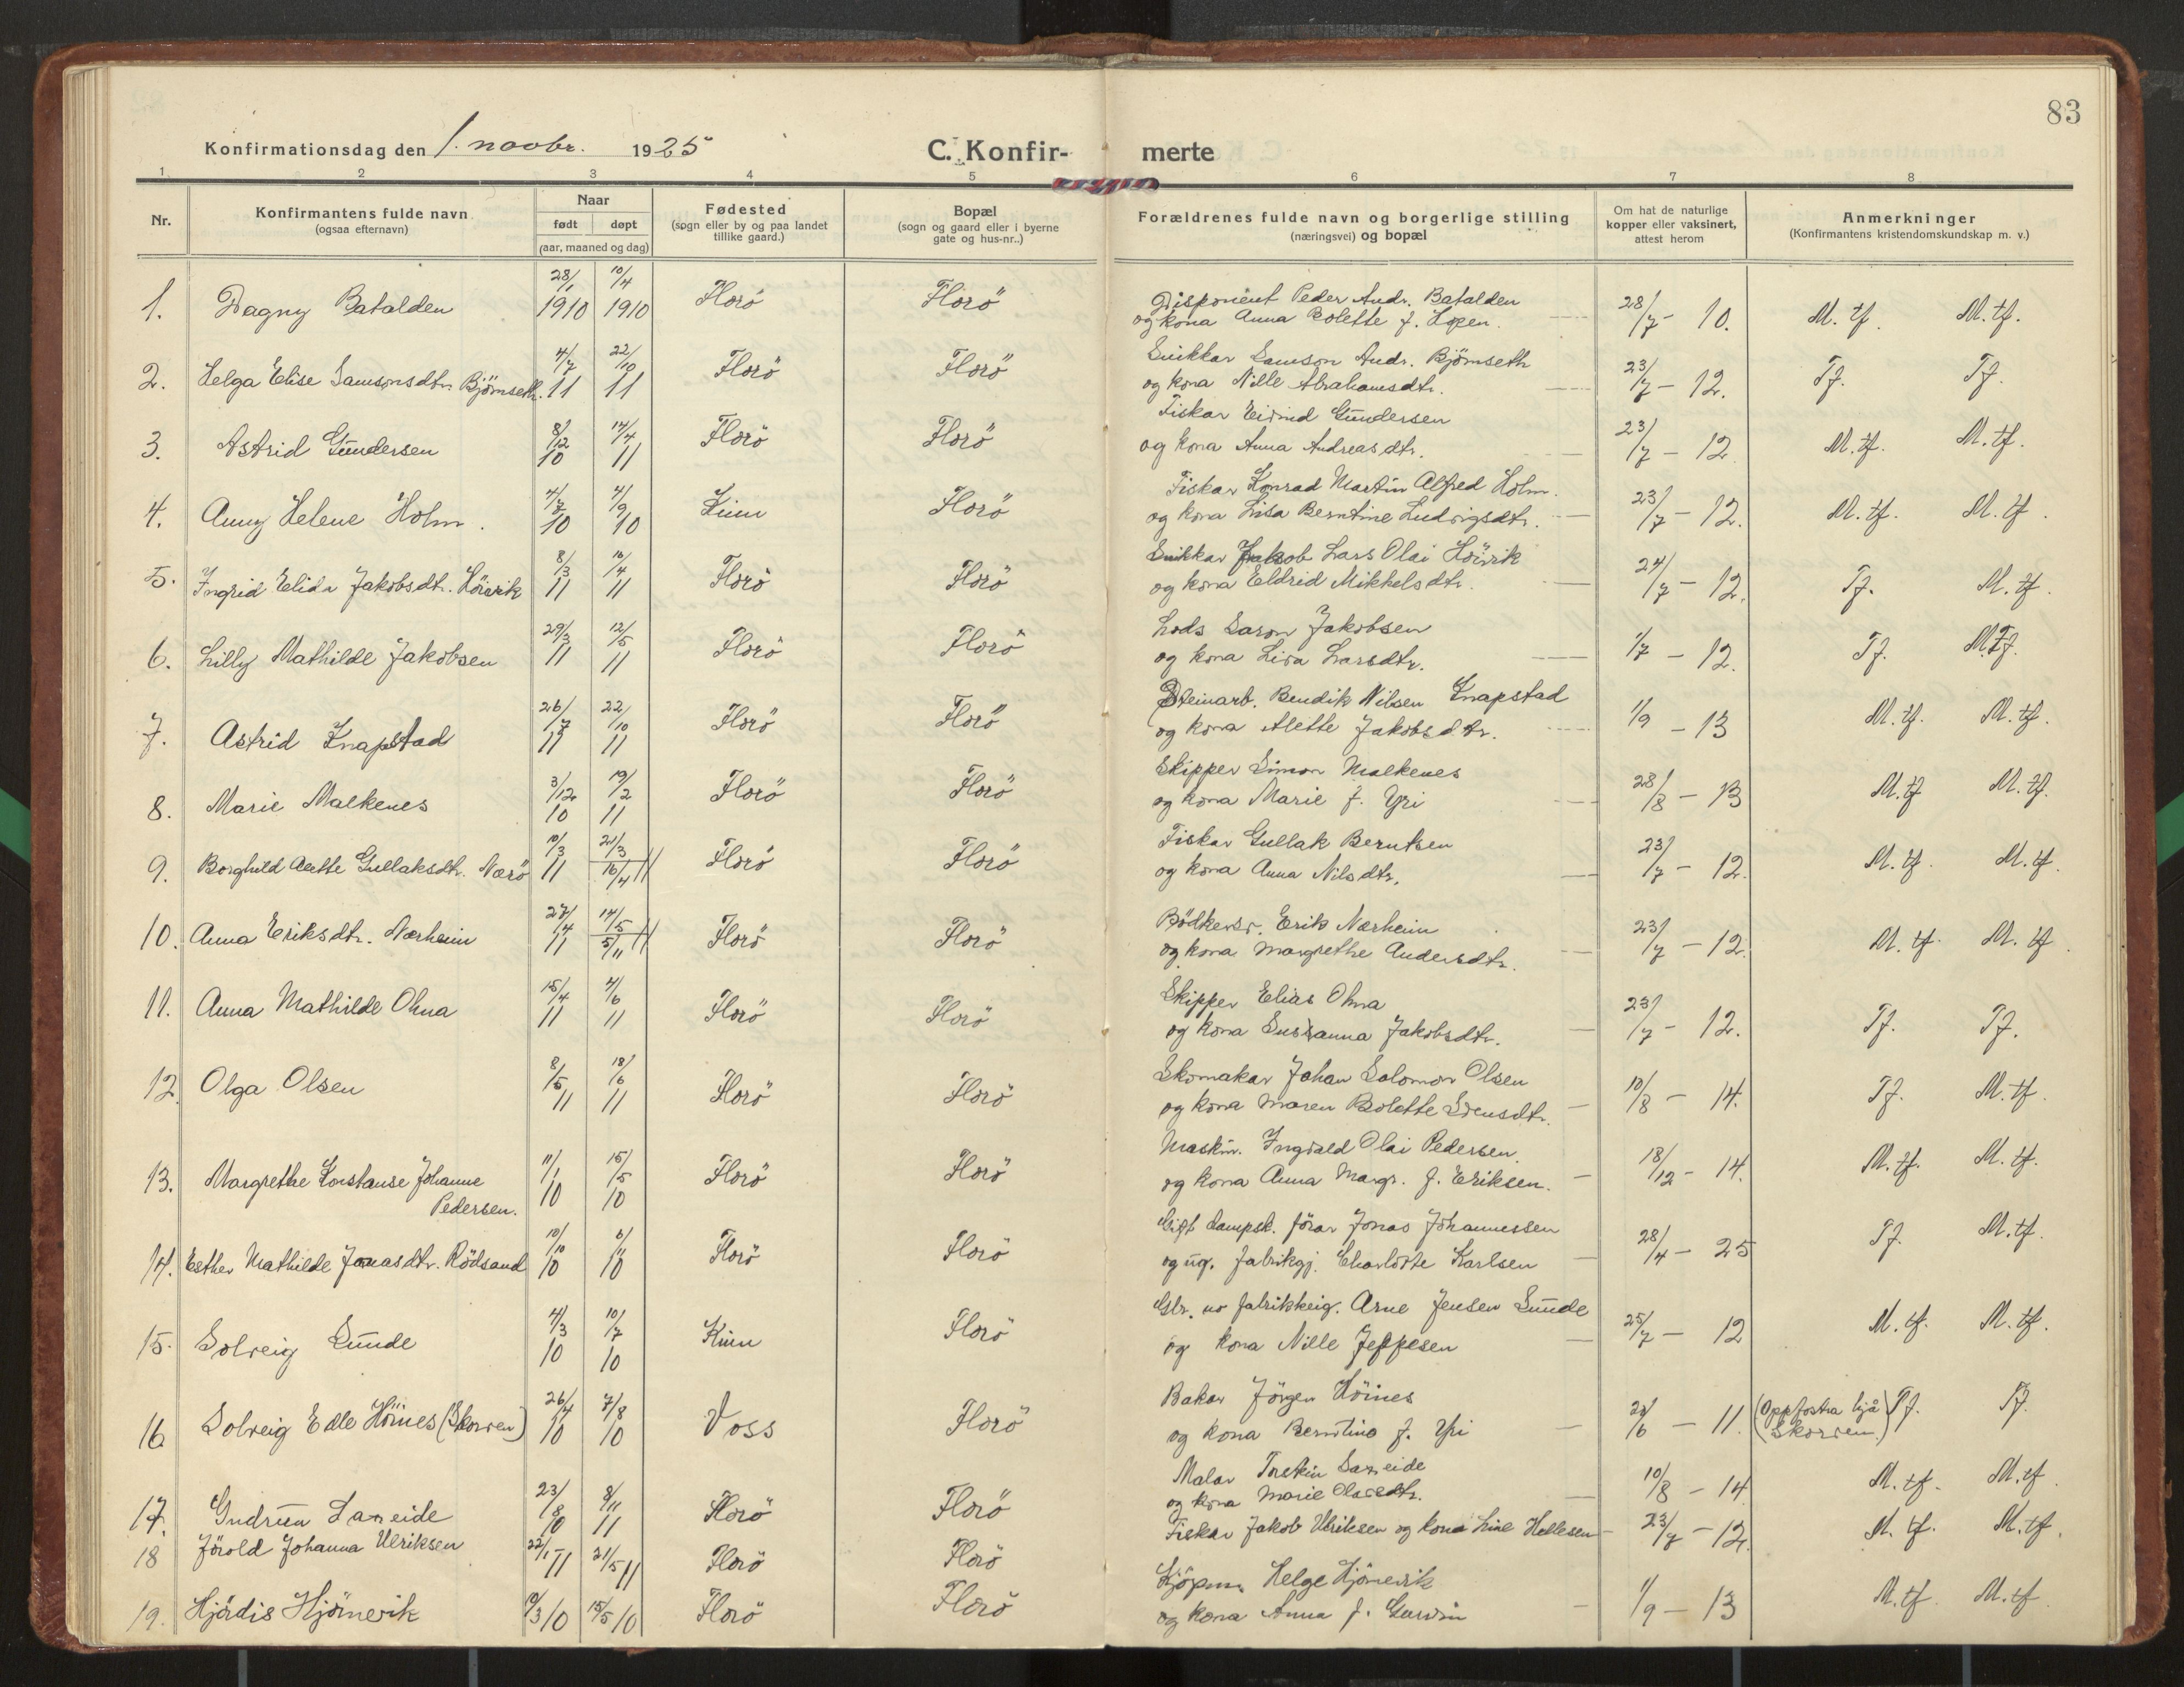 83
Konfirmationsdag den 1. novbr. 1925
C. Konfir- merte
1 2 3 4 5 6 7 8
Nr.
Konfirmantens fulde navn
(ogsaa efternavn)
Naar
født døpt
(aar, maaned og dag)
Fødested
(sogn eller by og paa landet
tillike gaard.)
Bopæl
(sogn og gaard eller i byerne
gate og hus-nr..)
Forældrenes fulde navn og borgerlige stilling
(næringsvei) og bopæl
Om hat de naturlige
kopper eller vaksinert,
attest herom
Anmerkninger
(Konfirmantens kristendomskundskap m. v.)
28/1 10/4 Disponent Peder Andr. Batalden
1. Dagny Batalden 1910 1910 Florö Florö og kona Anna Bolette f. Lopen. 28/7 - 10. M. tf. M. tf.
4/7 22/10 Snikkar Samson Andr. Björnseth
2. Helga Elise Samsonsdtr. Björnseth. 11 11 Florö Florö og kona Nille Abrahamsdtr. 23/7 - 12. Tf. Tf.
8/12 14/4 Fiskar Eivind Gundersen
3. Astrid Gundersen 10 11 Florö Florö og kona Anna Andreasdtr. 23/7 - 12 M. tf. M. tf.
4/7 4/9 Fiskar Konrad Martin Alfred Holm.
4. Anny Helene Holm. 10 10 Kinn Florö og kona Lisa Berntine Ludvigsdtr. 23/7 - 12. M. tf. M. tf.
8/3 16/4 Snikkar Jakob Lars Olai Höivik
5. Ingrid Elida Jakobsdtr. Höivik 11 11 Florö Florö og kona Eldrid Mikkelsdtr. 24/7 - 12. Tf. M. tf.
29/3 12/5 Lods Jakobsen
6. Lilly Mathilde Jakobsen 11 11 Florö Florö og kona Lisa Larsdtr. 1/7 - 12. Tf. Tf.
26/7 22/10 Steinarb. Bendik Nilsen Knapstad
7. Astrid Knapstad 11 11 Florö Florö og kona Alette Jakobsdtr. 1/9 - 13 M. tf. M. tf.
3/12 19/2 Skipper Simon Malkenes
8. Marie Malkenes 10 11 Florö Florö og kona Marie f. Yri 28/8 - 13 M. tf M. tf.
10/3 21/3 Fiskar Gullak Berntsen
9. Borghild Alette Gullaksdtr. Nærö 11 16/4 11 Florö Florö og kona Anna Nilsdtr. 23/7 - 12. M. tf. M. tf.
27/4 14/5 Erik Nærheim
10. Anna Eriksdtr. Nærheim 11 5/11 11 Florö Florö og kona Margrethe Andersdtr. 23/7 - 12. M. tf. M. tf.
15/4 4/6 Skipper Elias Ohna
11. Anna Mathilde Ohna 11 11 Florö Florö og kona Sussanna Jakobsdtr. 23/7 - 12. Tf. Tf.
8/5 18/6 Skomakar Johan Solomon Olsen
12. Olga Olsen 11 11 Florö Florö og kona Maren Bolette Svensdtr. 10/8 - 14. Tf. M. tf.
11/1 15/5 Maskin. Ingvald Olai Pedersen
13. Margrethe Konstanse Johanne 10 10 Florö Florö og kona Anna Margr. f. Eriksen. 18/12 - 14. M. tf. M. tf.
Pedersen.
10/10 6/11 Gift dampsk. förar Jonas Johannessen
14. Esther Mathilde Jonasdtr. Rödsand 10 10 Florö Florö og ug. fabrikgj. Charlotte Karlsen 28/4 - 25 Tf. M. tf.
4/3 10/7 fabrikkeig. Arne Jensen Sunde
15. Solveig Sunde 10 10 Kinn Florö og kona Nille Jeppesen 25/7 - 12 M. tf. M. tf.
26/4 7/8 Bakar Jörgen Höines
16 Solveig Edle Höines (Skorven) 10 10 Voss Florö og kona Berntine f. Yri - 11. (Oppfostra hjå Skorven) Tf. Tf.
23/8 8/11 Malar Torstein Sarseide
17. Gudrun Sarseide 10 11 Florö Florö og kona Marie Olavsdtr. 10/8 - 14 M. tf. M. tf.
18 Jörold Johanna Ulriksen 22/1 - 11 21/5 11 Florö Florö Fiskar Jakob Ulriksen og kona Line Hellesen 23/7 - 12. M. tf. M. tf.
Kjöpm. Helge Hjönevik
19. Hjördis Hjönevik 10/3 10 15/5 10 Florö Florö og kona Anna f. Gurvin 1/9 - 13 M. tf. M. tf.